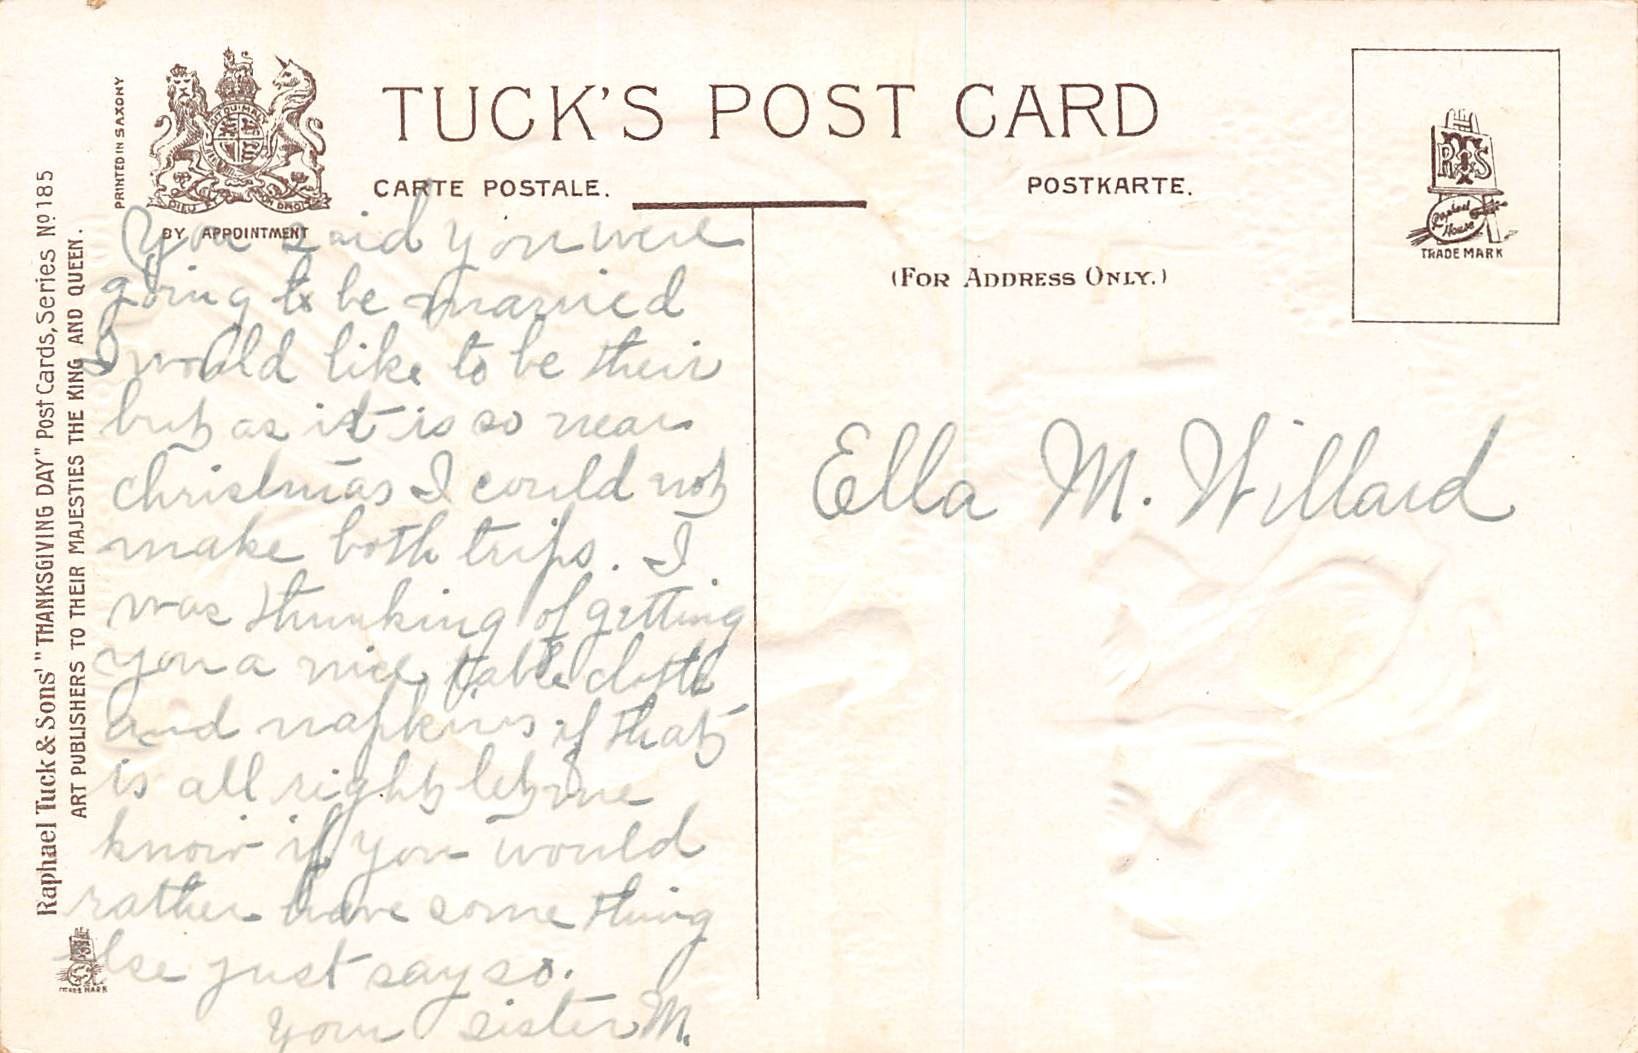 TUCK'S POST CARD
CARTE POSTALE.
POSTKARTE.
PRINTED IN SAXONY
DIEU ET MON DROIT
BY APPOINTMENT
(FOR ADDRESS ONLY.)
R T S
Raphael
House
TRADE MARK
Raphael Tuck & Sons' "THANKSGIVING DAY" Post Cards, Series No 185
ART PUBLISHERS TO THEIR MAJESTIES THE KING AND QUEEN.
TRADE MARK
You said you were
going to be married
I would like to be their
but as it is so near
christmas I could not
make both trips. I
was thinking of getting
you a nice table cloth
and napkins if that
is all right let me
know if you would
rather have some thing
else just say so.
your sister M.
Ella M. Willard